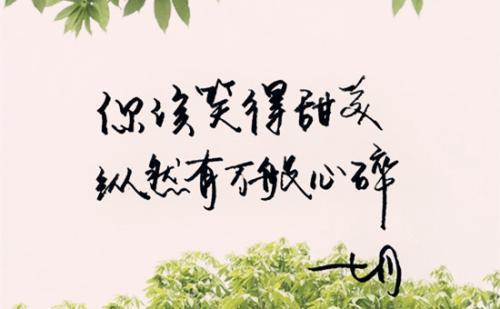 你该笑得甜美
纵然有万般心碎
七月